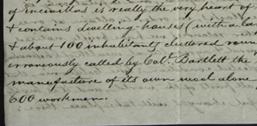 is really the very heart of
& contains dwelling-houses (with a
& about 100 inhabitants clustered
erroneously called by Col. Bartlett the
manufacture of its own meet alone
600 workmen.